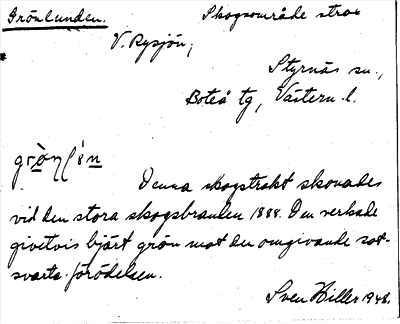 Grönlunden. Skogsområde strax
V. Rysjön,
Styrnäs sn.,
Boteå tg, Västern. l.
Denna skogstrakt skonades
vid den stora skogsbranden 1888. Den verkade
givetvis bjärt grön mot den omgivande sot-
svarta förödelsen.
Sven Hiller 1948.